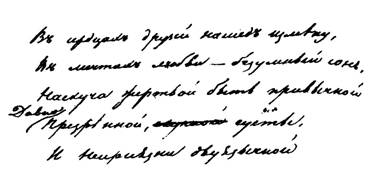 Въ сердцахъ друзей нашедъ измѣну,
Въ мечтахъ любви — безумный сонъ,
Наскуча жертвой быть привычной
Давно
Презрѣнной, суетѣ,
И непріязни двуязычной